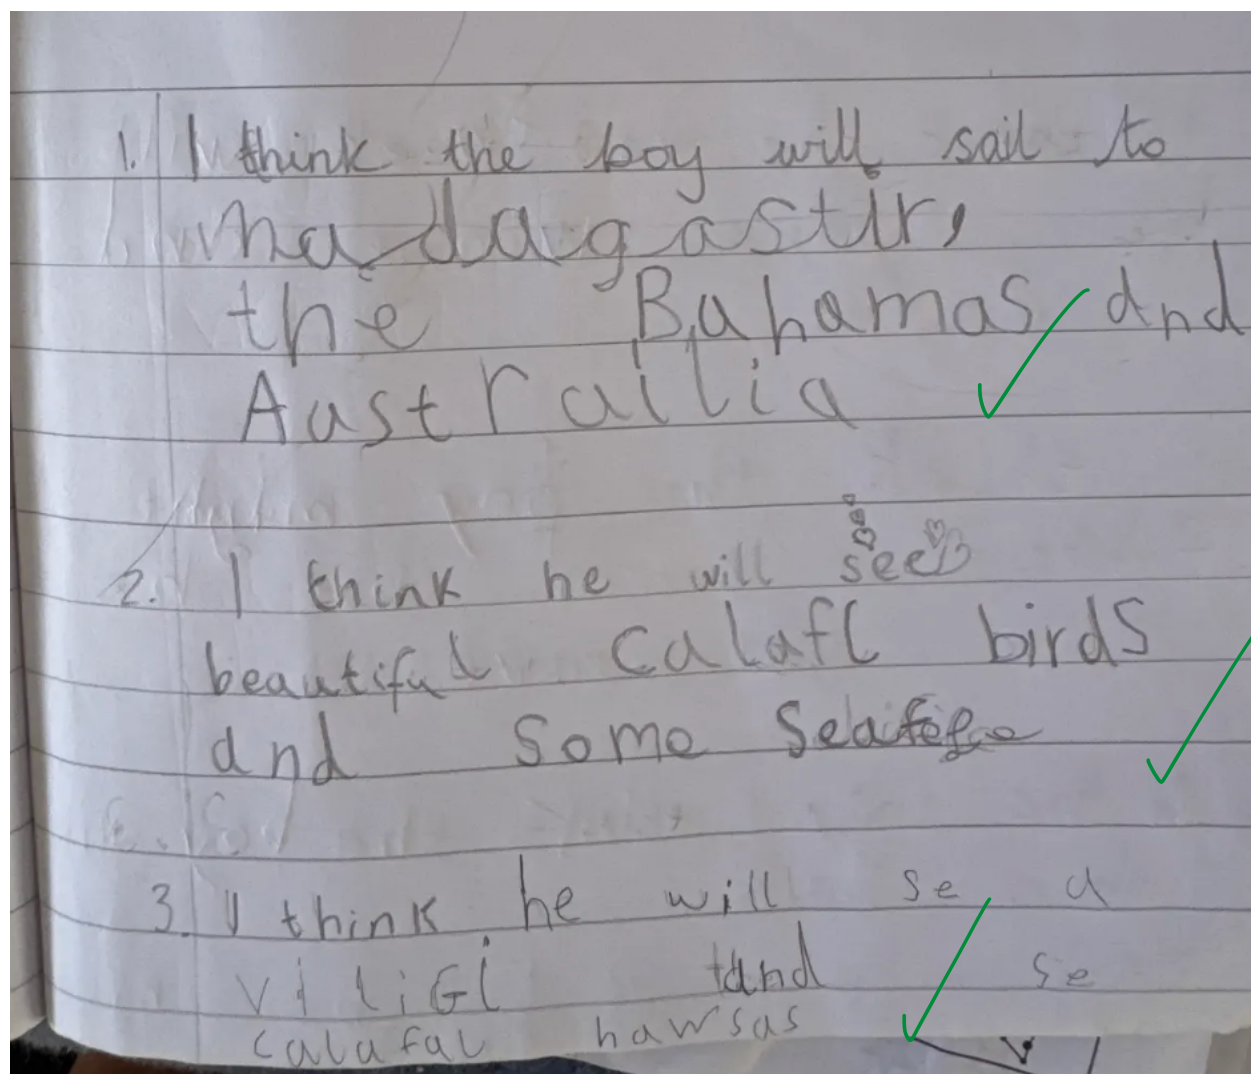 1. I think the boy will sail to
madagastir,
the Bahamas and
Austrailia
2. I think he will see
beautiful calafl birds
and some
3. I think he will se a
viliGl and se
calafal hawsas